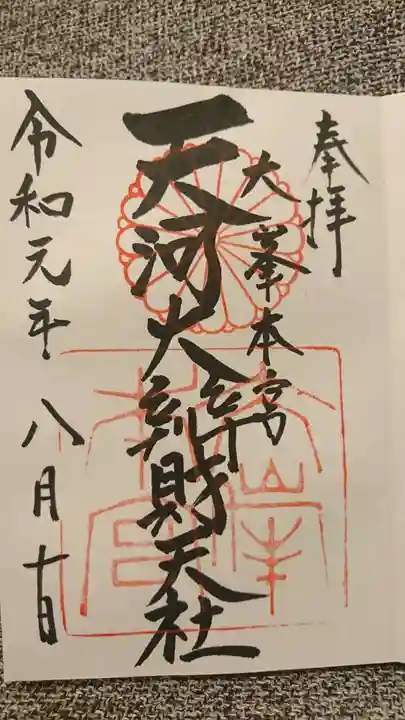 奉拝
大峯本宮
天河大辨財天社
令和元年 八月十日